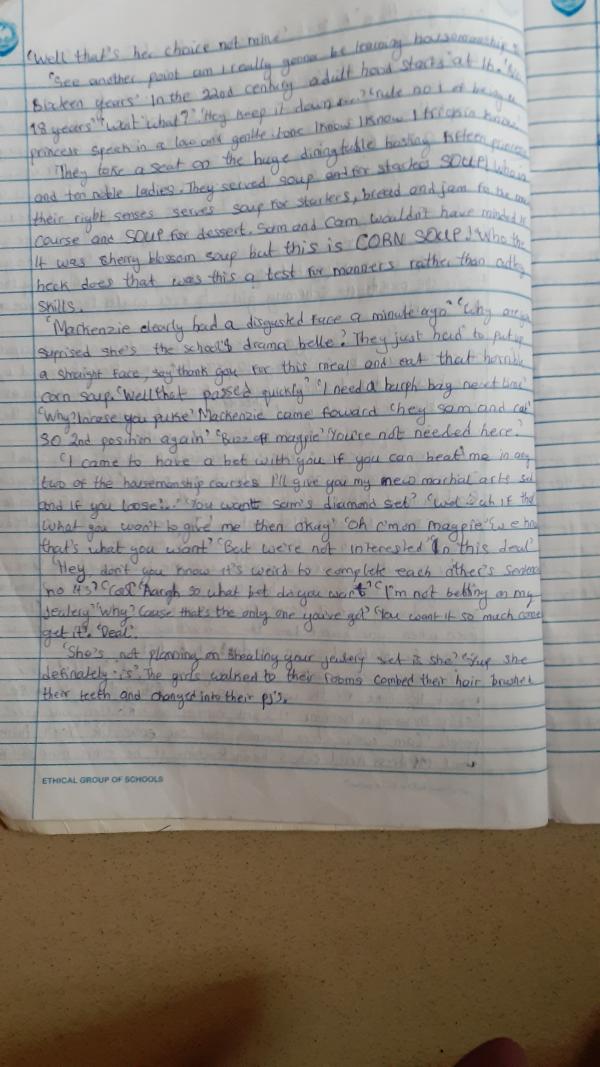 'Well that's her choice not mine'
'See another point am I really gonna be learning housemanship
Sixteen years' In the 22nd century adult hood starts at
18 years" "Wait what?" 'Hey keep it down rule no 1 of being a
princess speak in a low and gentle tone I know I know
They take a seat on the huge dining table hosting fifteen princesses
and ten noble ladies. They served soup and for starters SOUP! Who in
their right senses serves soup for starters, bread and jam for the main
course and SOUP for dessert. Sam and Cam wouldn't have minded if
it was sherry blossom soup but this is CORN SOUP! Who the
heck does that was this a test for manners rather than
skills.
'Mackenzie clearly had a disgusted face a minute ago' 'Why are you
suprised she's the school's drama belle? They just head to put up
a straight face, say thank you for this meal and eat that horrible
corn soup. 'Well that passed quickly' 'I need a burph bag next time'
'Why? Incase you puke' Mackenzie came foward 'hey sam and
so 2nd position again' 'Buzz off magpie' 'You're not needed here.'
'I came to have a bet with you if you can beat me in any
two of the housemanship courses I'll give you my new machial arts set
and if you loose...' 'You want sam's diamond set?' if
what you won't to give me then okay' 'Oh c'mon magpie'
that's what you want' 'But we're not interested' 'In this deal'
'Hey don't you know it's weird to complete each other's
no it's cool' 'Aargh so what bet do you want' 'I'm not betting on my
jewlery' 'Why? Cause that's the only one you've got' 'You want it so much come
get it'. 'Deal'.
'She's not planning on stealing your jewlery set is she?' 'Yup she
definately is'. The girls walked to their rooms combed their hair brushed
their teeth and changed into their pj's.
ETHICAL GROUP OF SCHOOLS